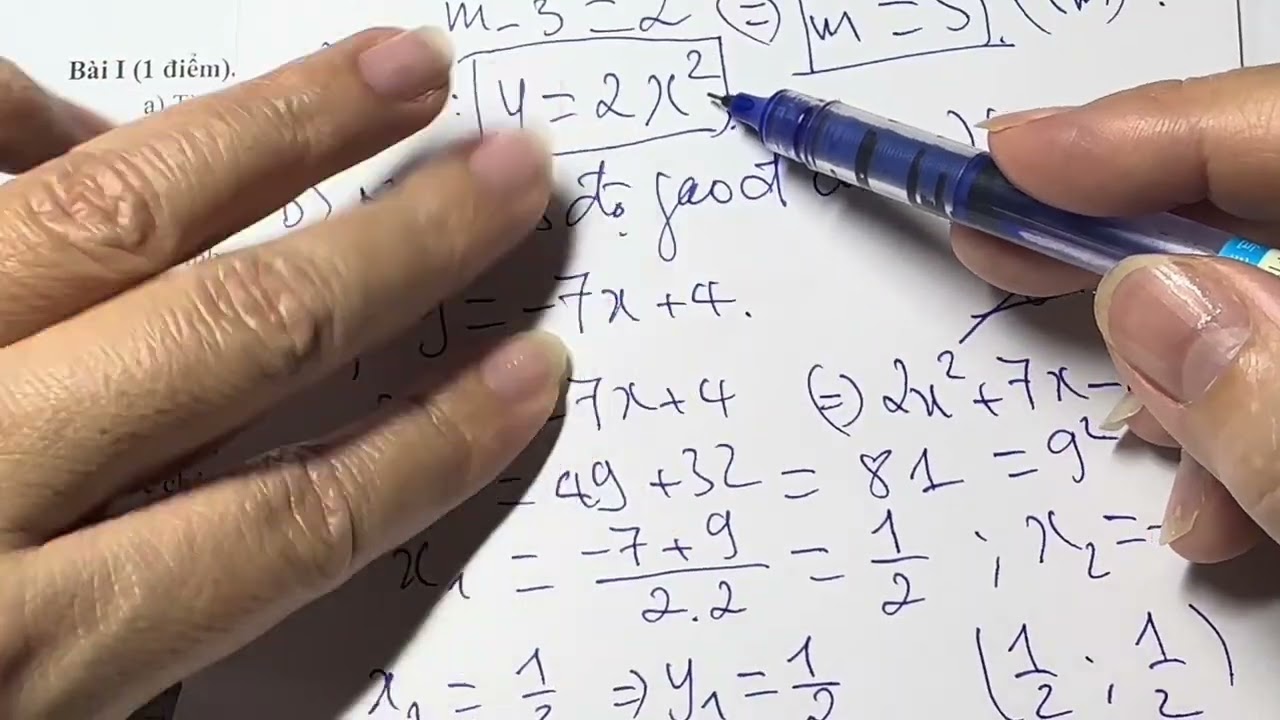 m - 3 = 2 (=) m = 5.
Bài I (1 điểm).
a)
: y = 2x²
b) độ giao đ
y = -7x + 4.
-7x + 4 (=) 2x² + 7x -
= 49 + 32 = 81 = 9²
x₁ = (-7 + 9)/(2.2) = 1/2 ; x₂ = -
x₁ = 1/2 => y₁ = 1/2 (1/2 ; 1/2)